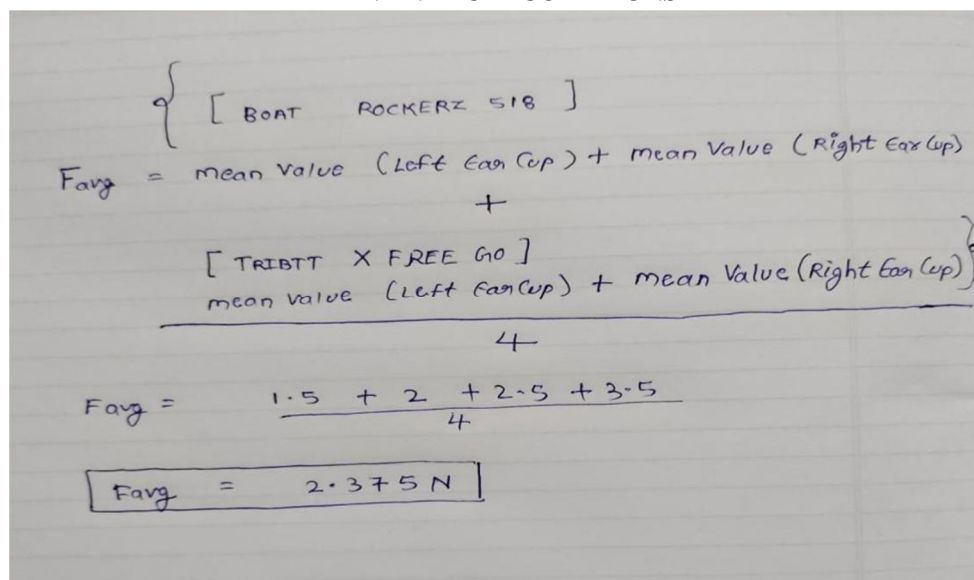 [ BOAT ROCKERZ 518 ]
Favg = mean value (Left Ear Cup) + mean Value (Right Ear Cup)
+
[ TRIBTT X FREE GO ]
mean value (Left Ear Cup) + mean Value (Right Ear Cup)
4
Favg = 1.5 + 2 + 2.5 + 3.5
4
Favg = 2.375 N